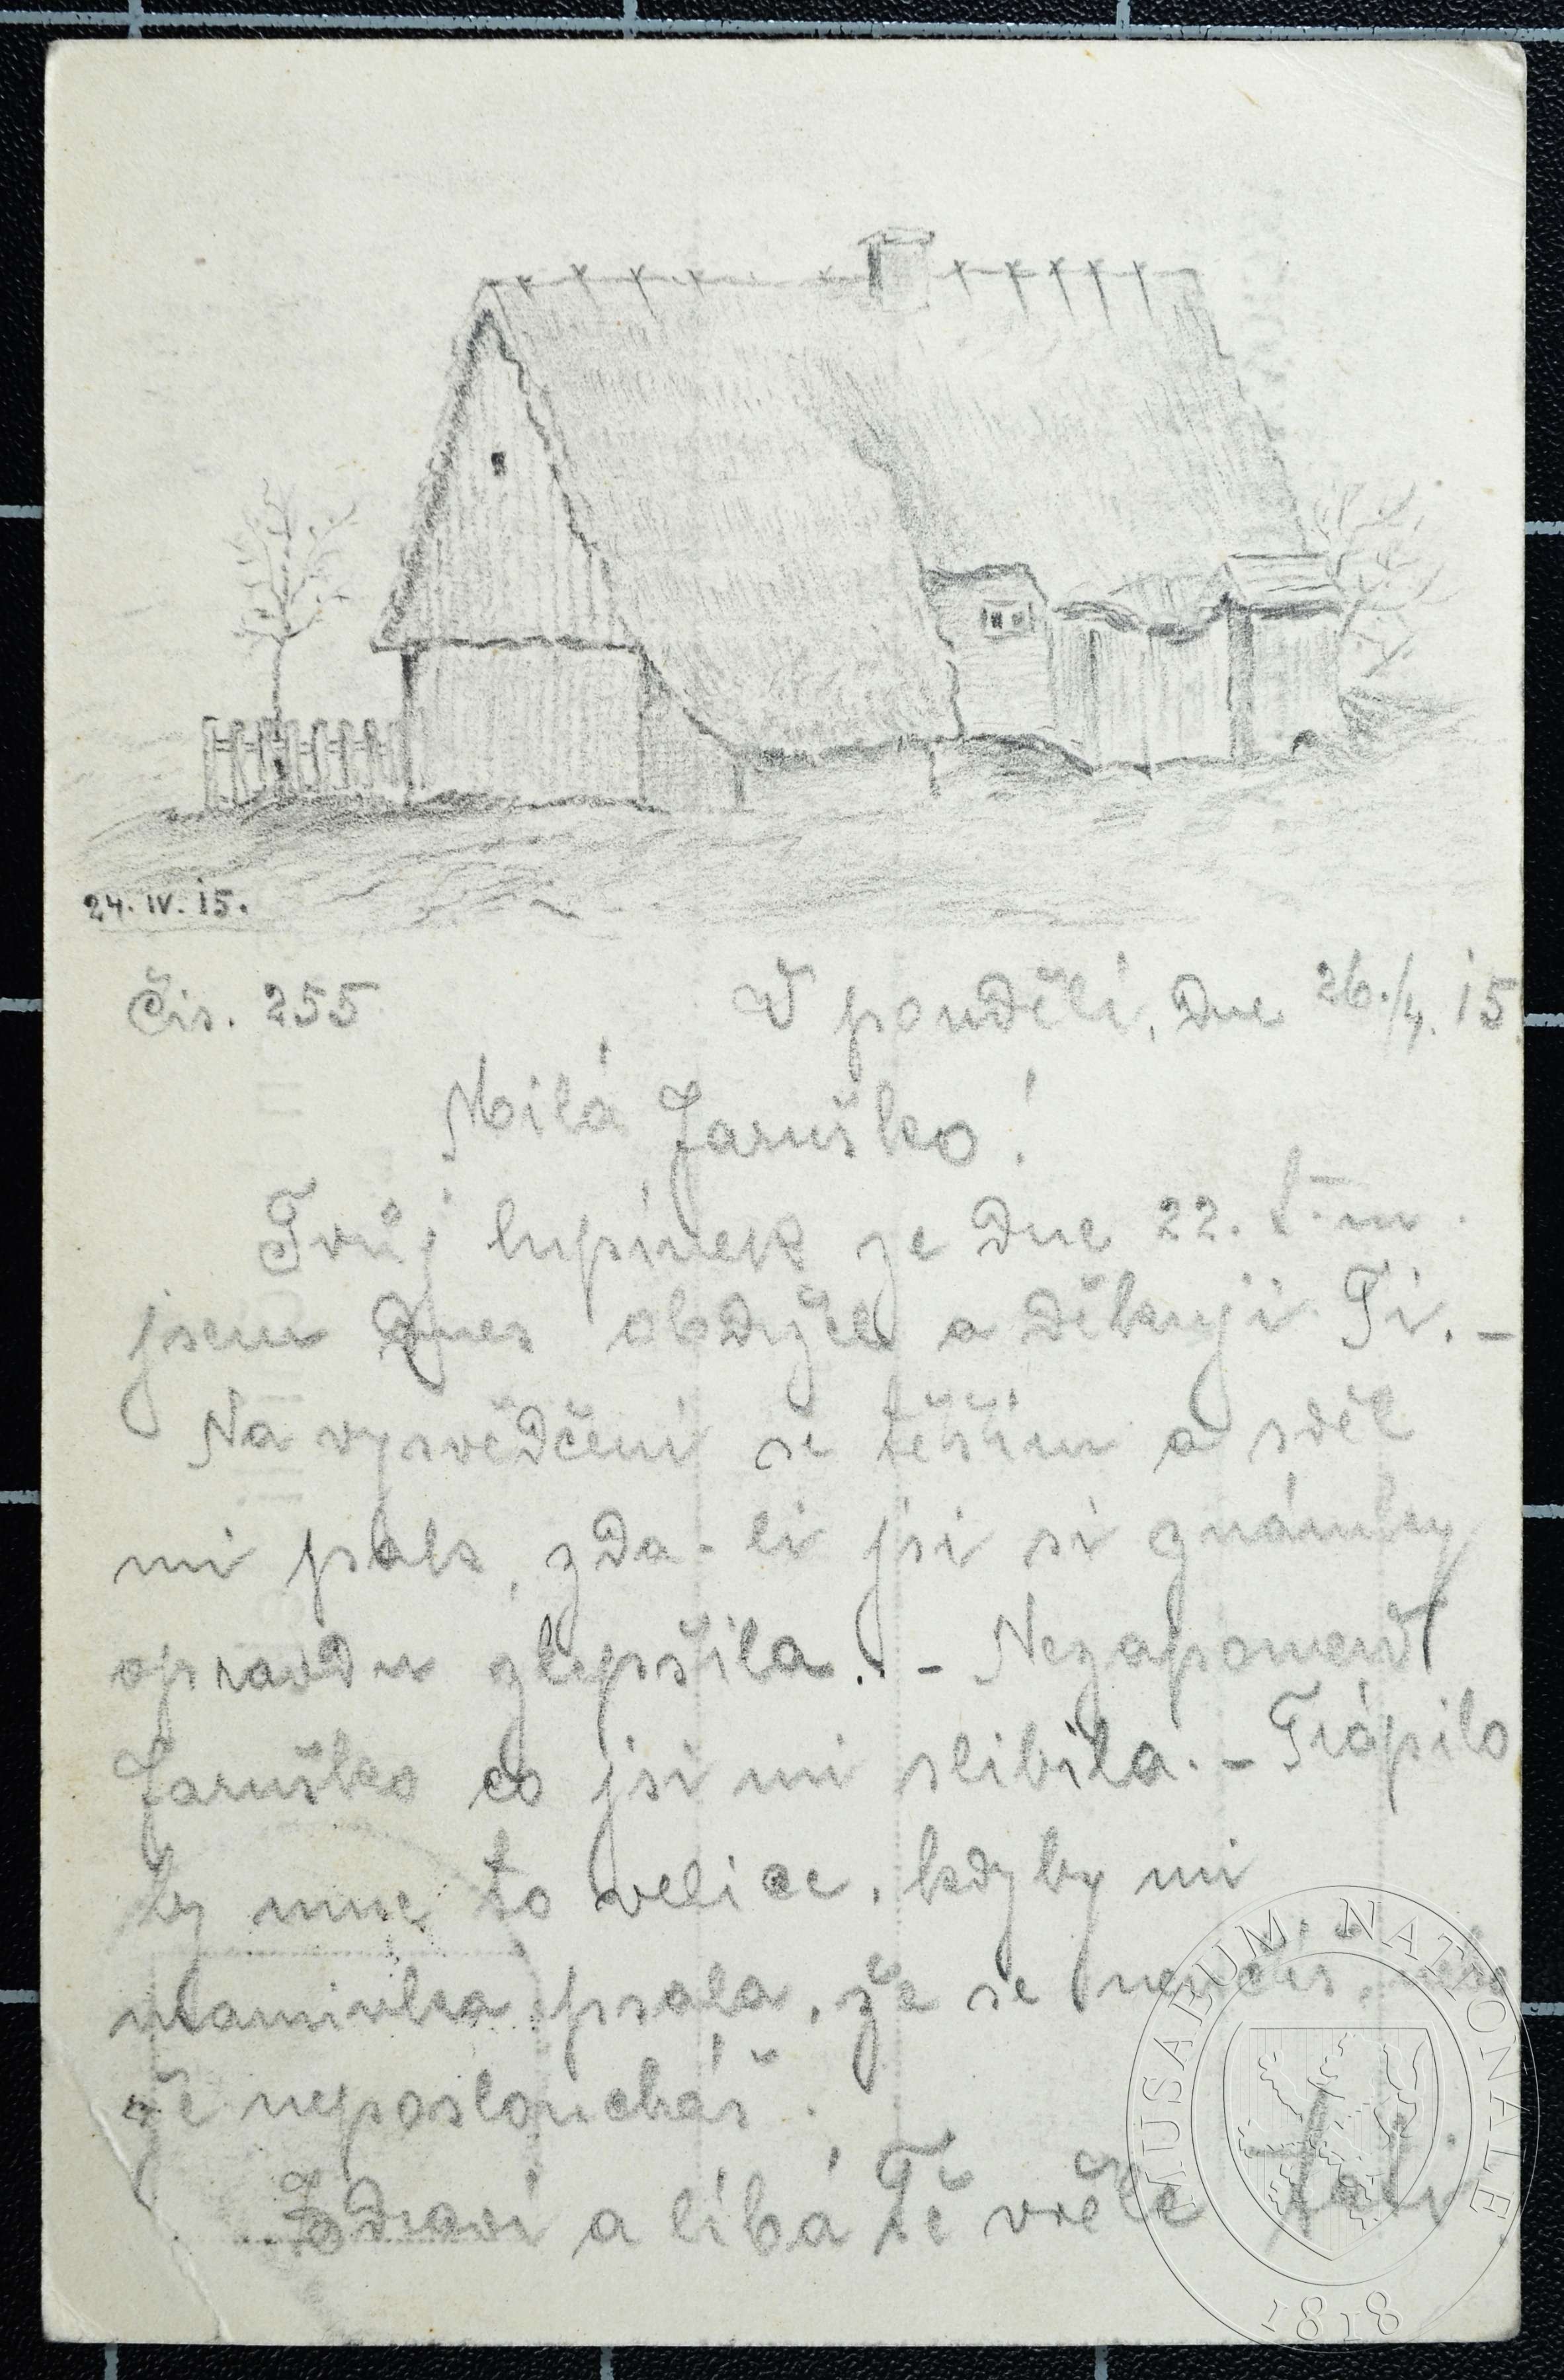 24. IV. 15.
Čís. 255
V pondělí, dne 26./4. 15
Milá Jaruško!
Tvůj lupínek ze dne 22. t. m.
jsem dnes obdržel a děkuji Ti. –
Na vysvědčení se těším a sděl
mi pak, zda-li jsi si známky
opravdu zlepšila. – Nezapomeň
Jaruško co jsi mi slíbila. – Trápilo
by mne to velice, kdyby mi
maminka psala, že se neučíš, nebo
že neposloucháš.
Zdraví a líbá Tě vřele
MUSAEUM NATIONALE
1818